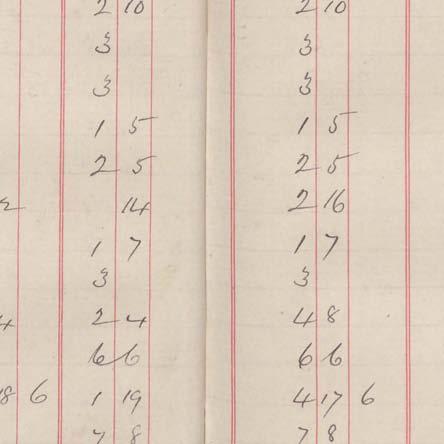 2 10 2 10
3 3
3 3
1 5 1 5
2 5 2 5
2 14 2 16
1 7 1 7
3 3
4 2 4 4 8
6 6 6 6
18 6 1 19 4 17 6
7 8 7 8